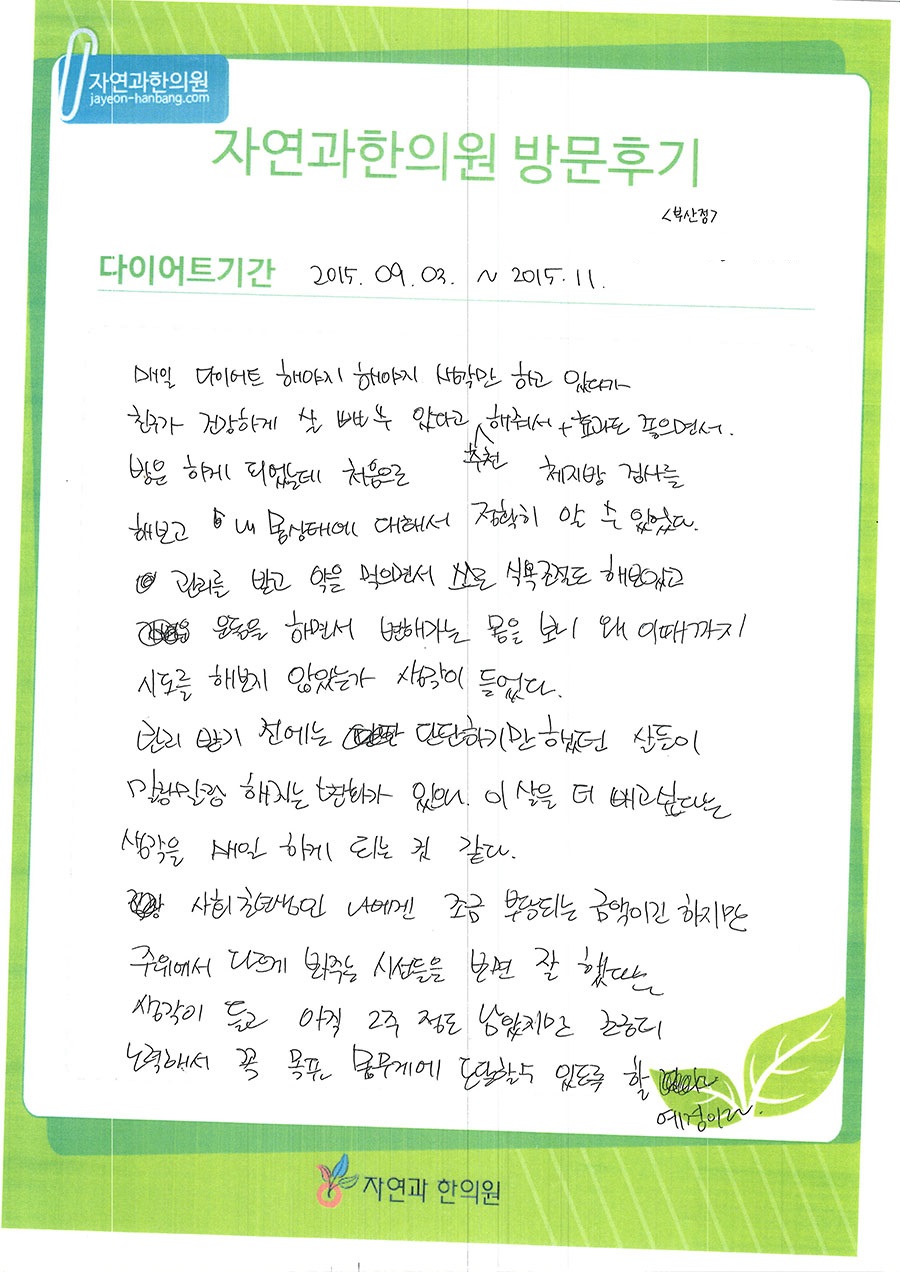 자연과한의원
jayeon-hanbang.com
자연과한의원 방문후기
<부산점>
다이어트기간 2015. 09. 03. ~ 2015. 11.
매일 다이어트 해야지 해야지 생각만 하고 있다가
친구가 건강하게 살 뺄 수 있다고 추천 해줘서 + 효과도 좋으면서.
방문 하게 되었는데 처음으로 체지방 검사를
해보고 내 몸상태에 대해서 정확히 알 수 있었다.
관리를 받고 약을 먹으면서 스스로 식욕조절도 해보았고
운동을 하면서 변해가는 몸을 보니 왜 이때까지
시도를 해보지 않았는가 생각이 들었다.
관리 받기 전에는 단단하기만 했던 살들이
말랑말랑 해지는 변화가 있으니. 이 살을 더 빼고싶다는
생각을 매일 하게 되는 것 같다.
사회초년생인 나에겐 조금 부담되는 금액이긴 하지만
주위에서 다르게 봐주는 시선들을 보면 잘 했다는
생각이 들고 아직 2주 정도 남았지만 조금더
노력해서 꼭 목표 몸무게에 도달할수 있도록 할
예정이다.
자연과 한의원